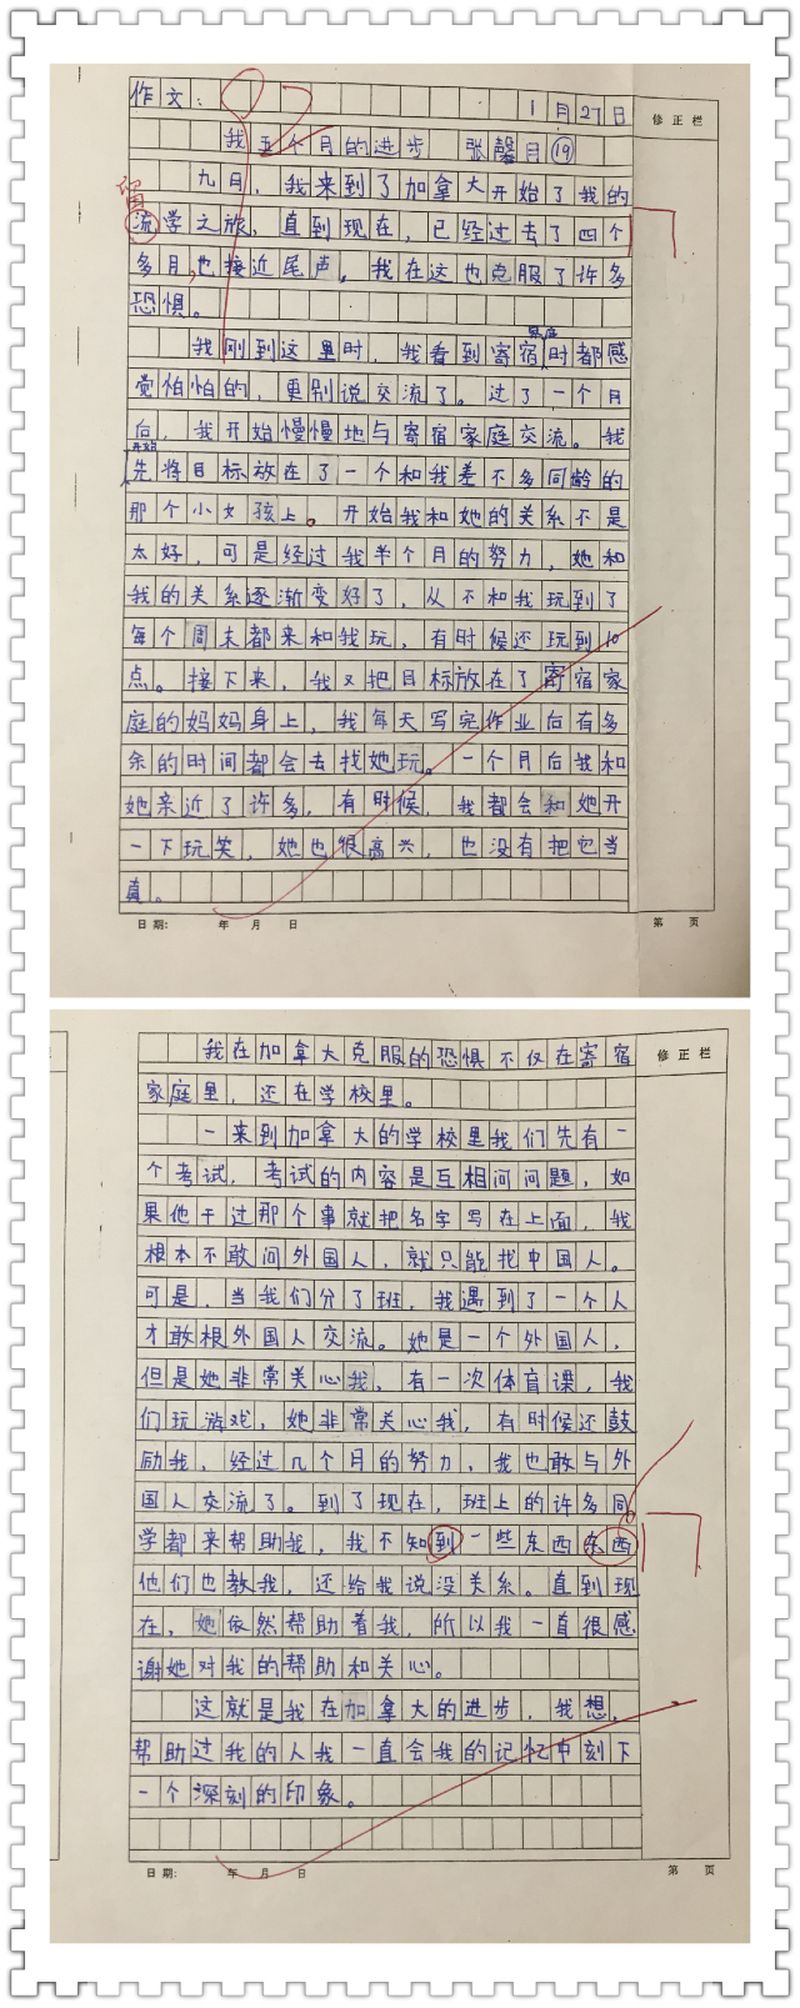 作文： 1月27日
修正栏
我五个月的进步 张馨月⑲
九月，我来到了加拿大开始了我的
留
流学之旅，直到现在，已经过去了四个
多月，也接近尾声，我在这也克服了许多
恐惧。
家庭
我刚到这里时，我看到寄宿时都感
觉怕怕的，更别说交流了。过了一个月
后，我开始慢慢地与寄宿家庭交流。我
开始
先将目标放在了一个和我差不多同龄的
那个小女孩上。开始我和她的关系不是
太好，可是经过我半个月的努力，她和
我的关系逐渐变好了，从不和我玩到了
每个周末都来和我玩，有时候还玩到10
点。接下来，我又把目标放在了寄宿家
庭的妈妈身上，我每天写完作业后有多
余的时间都会去找她玩。一个月后我和
她亲近了许多，有时候，我都会和她开
一下玩笑，她也很高兴，也没有把它当
真。
日期： 年 月 日 第 页
我在加拿大克服的恐惧不仅在寄宿
修正栏
家庭里，还在学校里。
一来到加拿大的学校里我们先有一
个考试，考试的内容是互相问问题，如
果他干过那个事就把名字写在上面，我
根本不敢问外国人，就只能找中国人。
可是，当我们分了班，我遇到了一个人
才敢根外国人交流。她是一个外国人，
但是她非常关心我，有一次体育课，我
们玩游戏，她非常关心我，有时候还鼓
励我，经过几个月的努力，我也敢与外
国人交流了。到了现在，班上的许多同
学都来帮助我，我不知到一些东西东西
他们也教我，还给我说没关系。直到现
在，她依然帮助着我，所以我一直很感
谢她对我的帮助和关心。
这就是我在加拿大的进步，我想，
帮助过我的人我一直会我的记忆中刻下
一个深刻的印象。
日期： 年 月 日 第 页